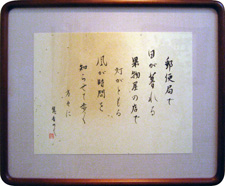 郵便局で
日が暮れる
果物屋の店で
灯がともる
風が時間を
知らせて歩く